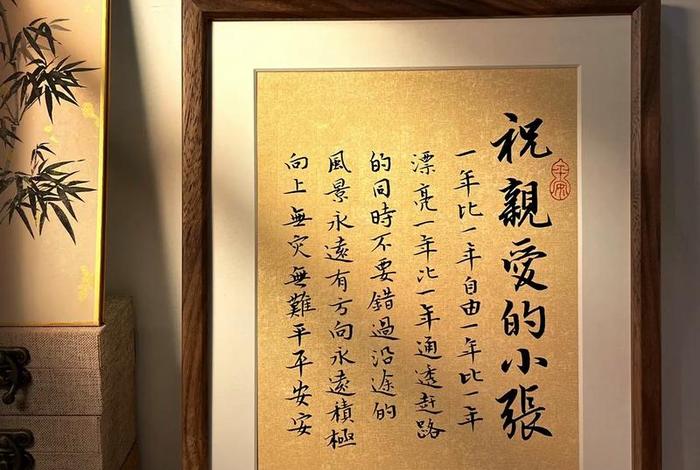 祝親愛的小張
一年比一年自由一年比一年
漂亮一年比一年通透赶路
的同時不要錯過沿途的
風景永遠有方向永遠積極
向上無灾無難平平安安
平安